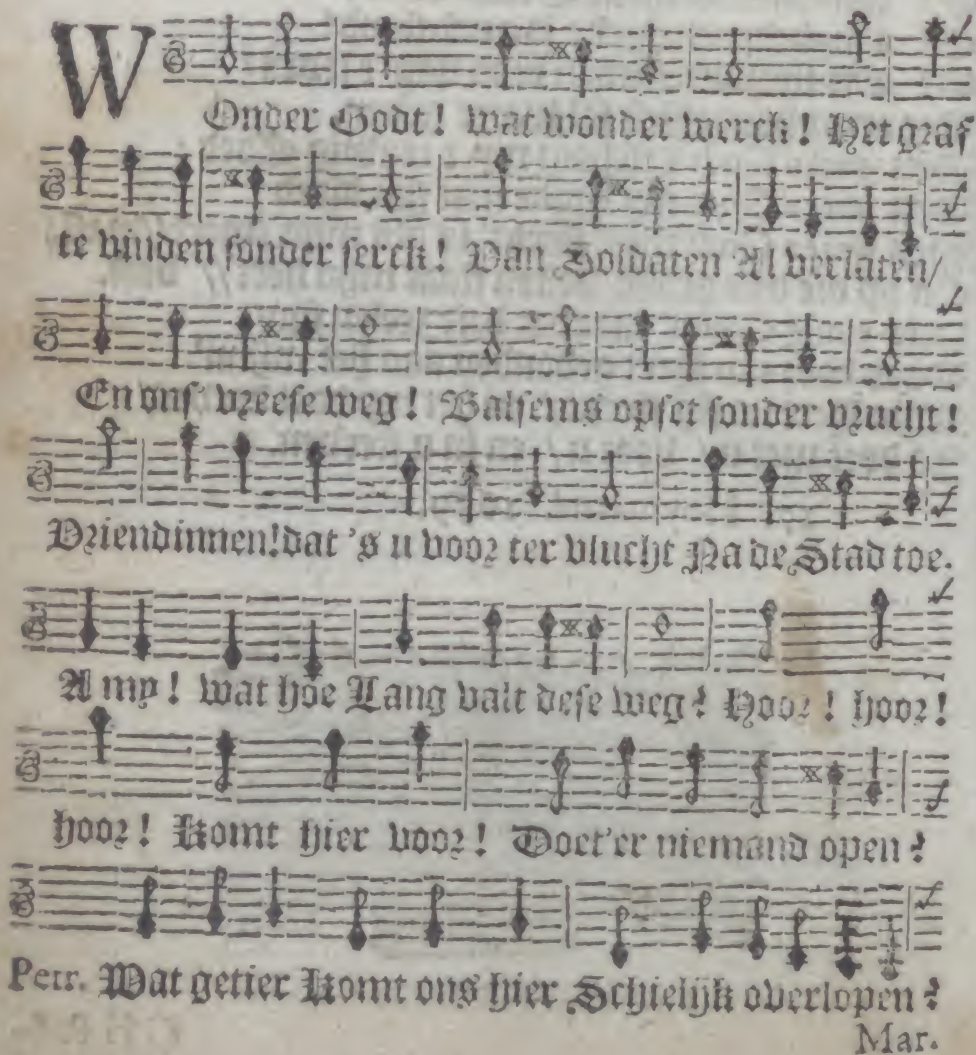 WOnder Godt! wat wonder werck! Het graf
te vinden sonder serck! Van Soldaten Al verlaten/
En ons vreese weg! Balsems opset sonder vrucht!
Vriendinnen! dat 's u voor ter vlucht Na de Stad toe.
A my! wat hoe Lang valt dese weg? Hoor! hoor!
hoor! Komt hier voor! Doet'er niemand open?
Petr. Wat getier Komt ons hier Schielijk overlopen?
Mar.